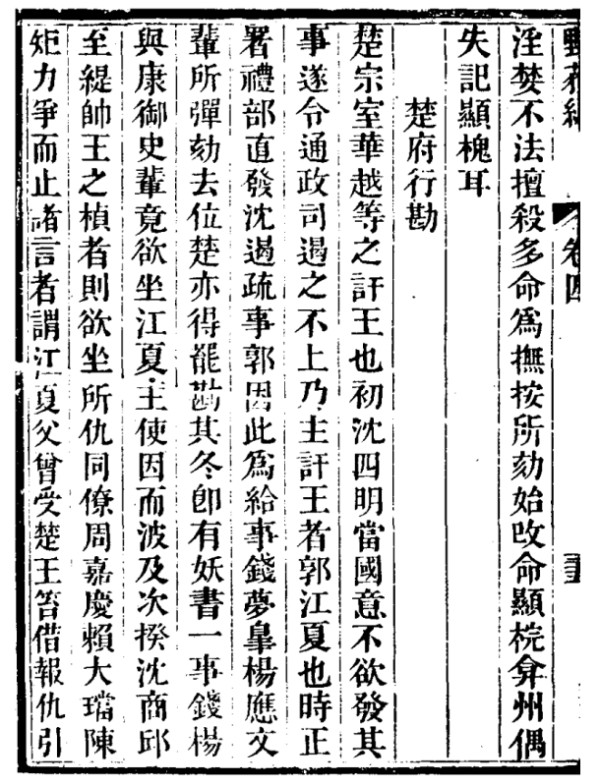 淫婪不法擅殺多命爲撫按所劾始改命顯梡弇州偶
失記顯槐耳
楚府行勘
楚宗室華越等之訐王也初沈四明當國意不欲發其
事遂令通政司遏之不上乃主訐王者郭江夏也時正
署禮部直發沈遏疏事郭因此爲給事錢夢臯楊應文
輩所彈劾去位楚亦得罷勘其冬卽有妖書一事錢楊
與康御史輩竟欲坐江夏主使因而波及次揆沈商邱
至緹帥王之楨者則欲坐所仇同僚周嘉慶賴大璫陳
矩力爭而止諸言者謂江夏父曾受楚王笞借報仇引
卷四